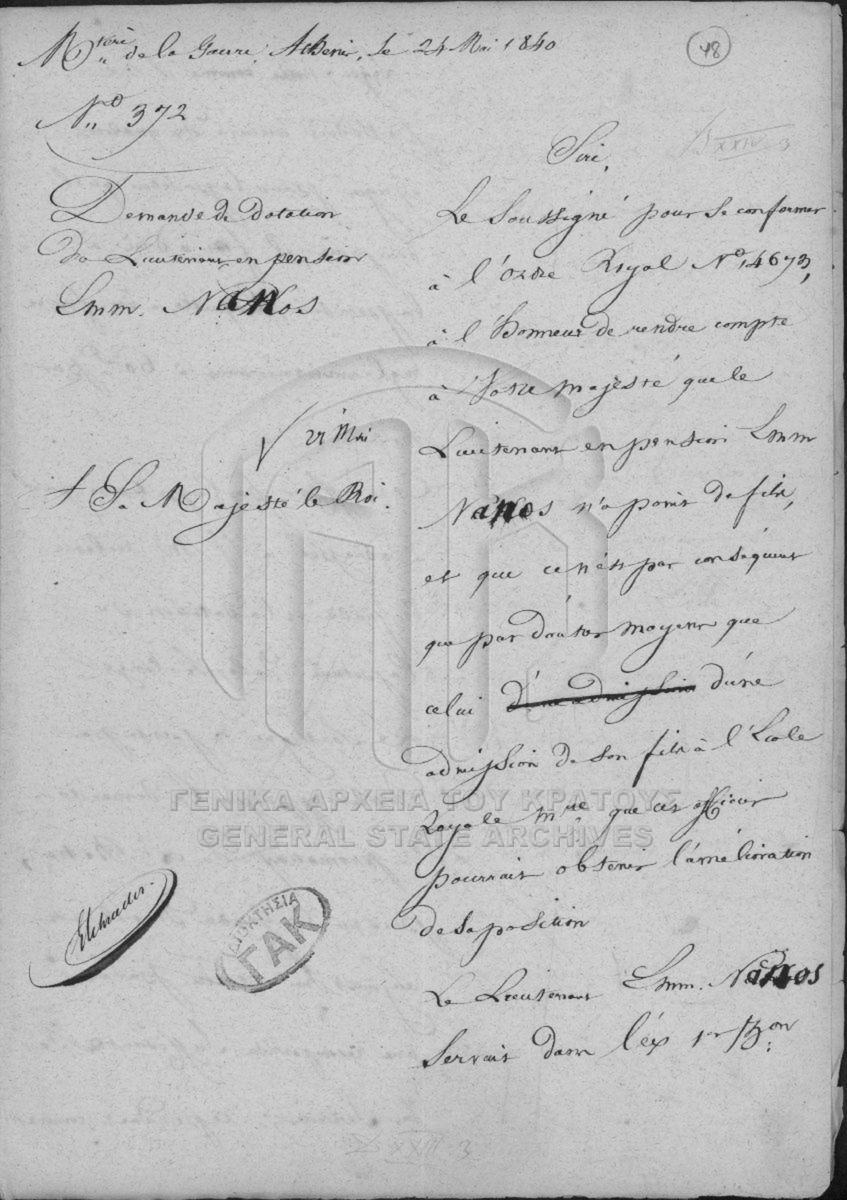 Mtère de la Guerre, Athènes, le 24 Mai 1840
48
No 372
Sire,
Demande de dotation
du Lieutenant en pension
Emm. Nanos
Le Soussigné pour se conformer
à l'Ordre Royal No 14673,
à l'honneur de rendre compte
à Votre Majesté que le
Lieutenant en pension Emm
Nanos n'a point de fils,
et que ce n'est par conséquent
que par d'autres moyens que
celui d'une admission d'une
admission de son fils à l'Ecole
Royale mre que cet officier
pourrait obtenir l'amélioration
de sa position
Le Lieutenant Emm. Nanos
Servait dans l'ex 1er Bon
Mai
A Sa Majesté le Roi.
Schrader.
ΓΕΝΙΚΑ ΑΡΧΕΙΑ ΤΟΥ ΚΡΑΤΟΥΣ
GENERAL STATE ARCHIVES
ΙΔΙΟΚΤΗΣΙΑ
ΓΑΚ
XXII 3